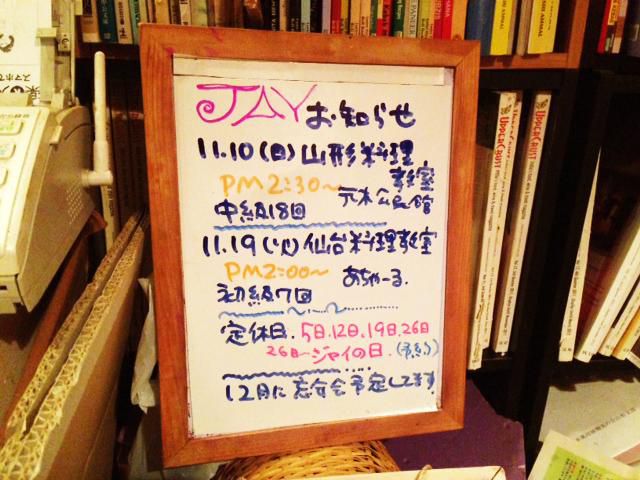 JAY お知らせ
11.10(日)山形料理
教室
PM2:30~ 元木公民館
中級18回
11.19(火)仙台料理教室
PM2:00~ あちゃーる.
初級7回
定休日.5日.12日.19日.26日
26日~ジャイの日.(予約)
12月に忘年会予定してます
UPPERCRUST
UPPERCRUST